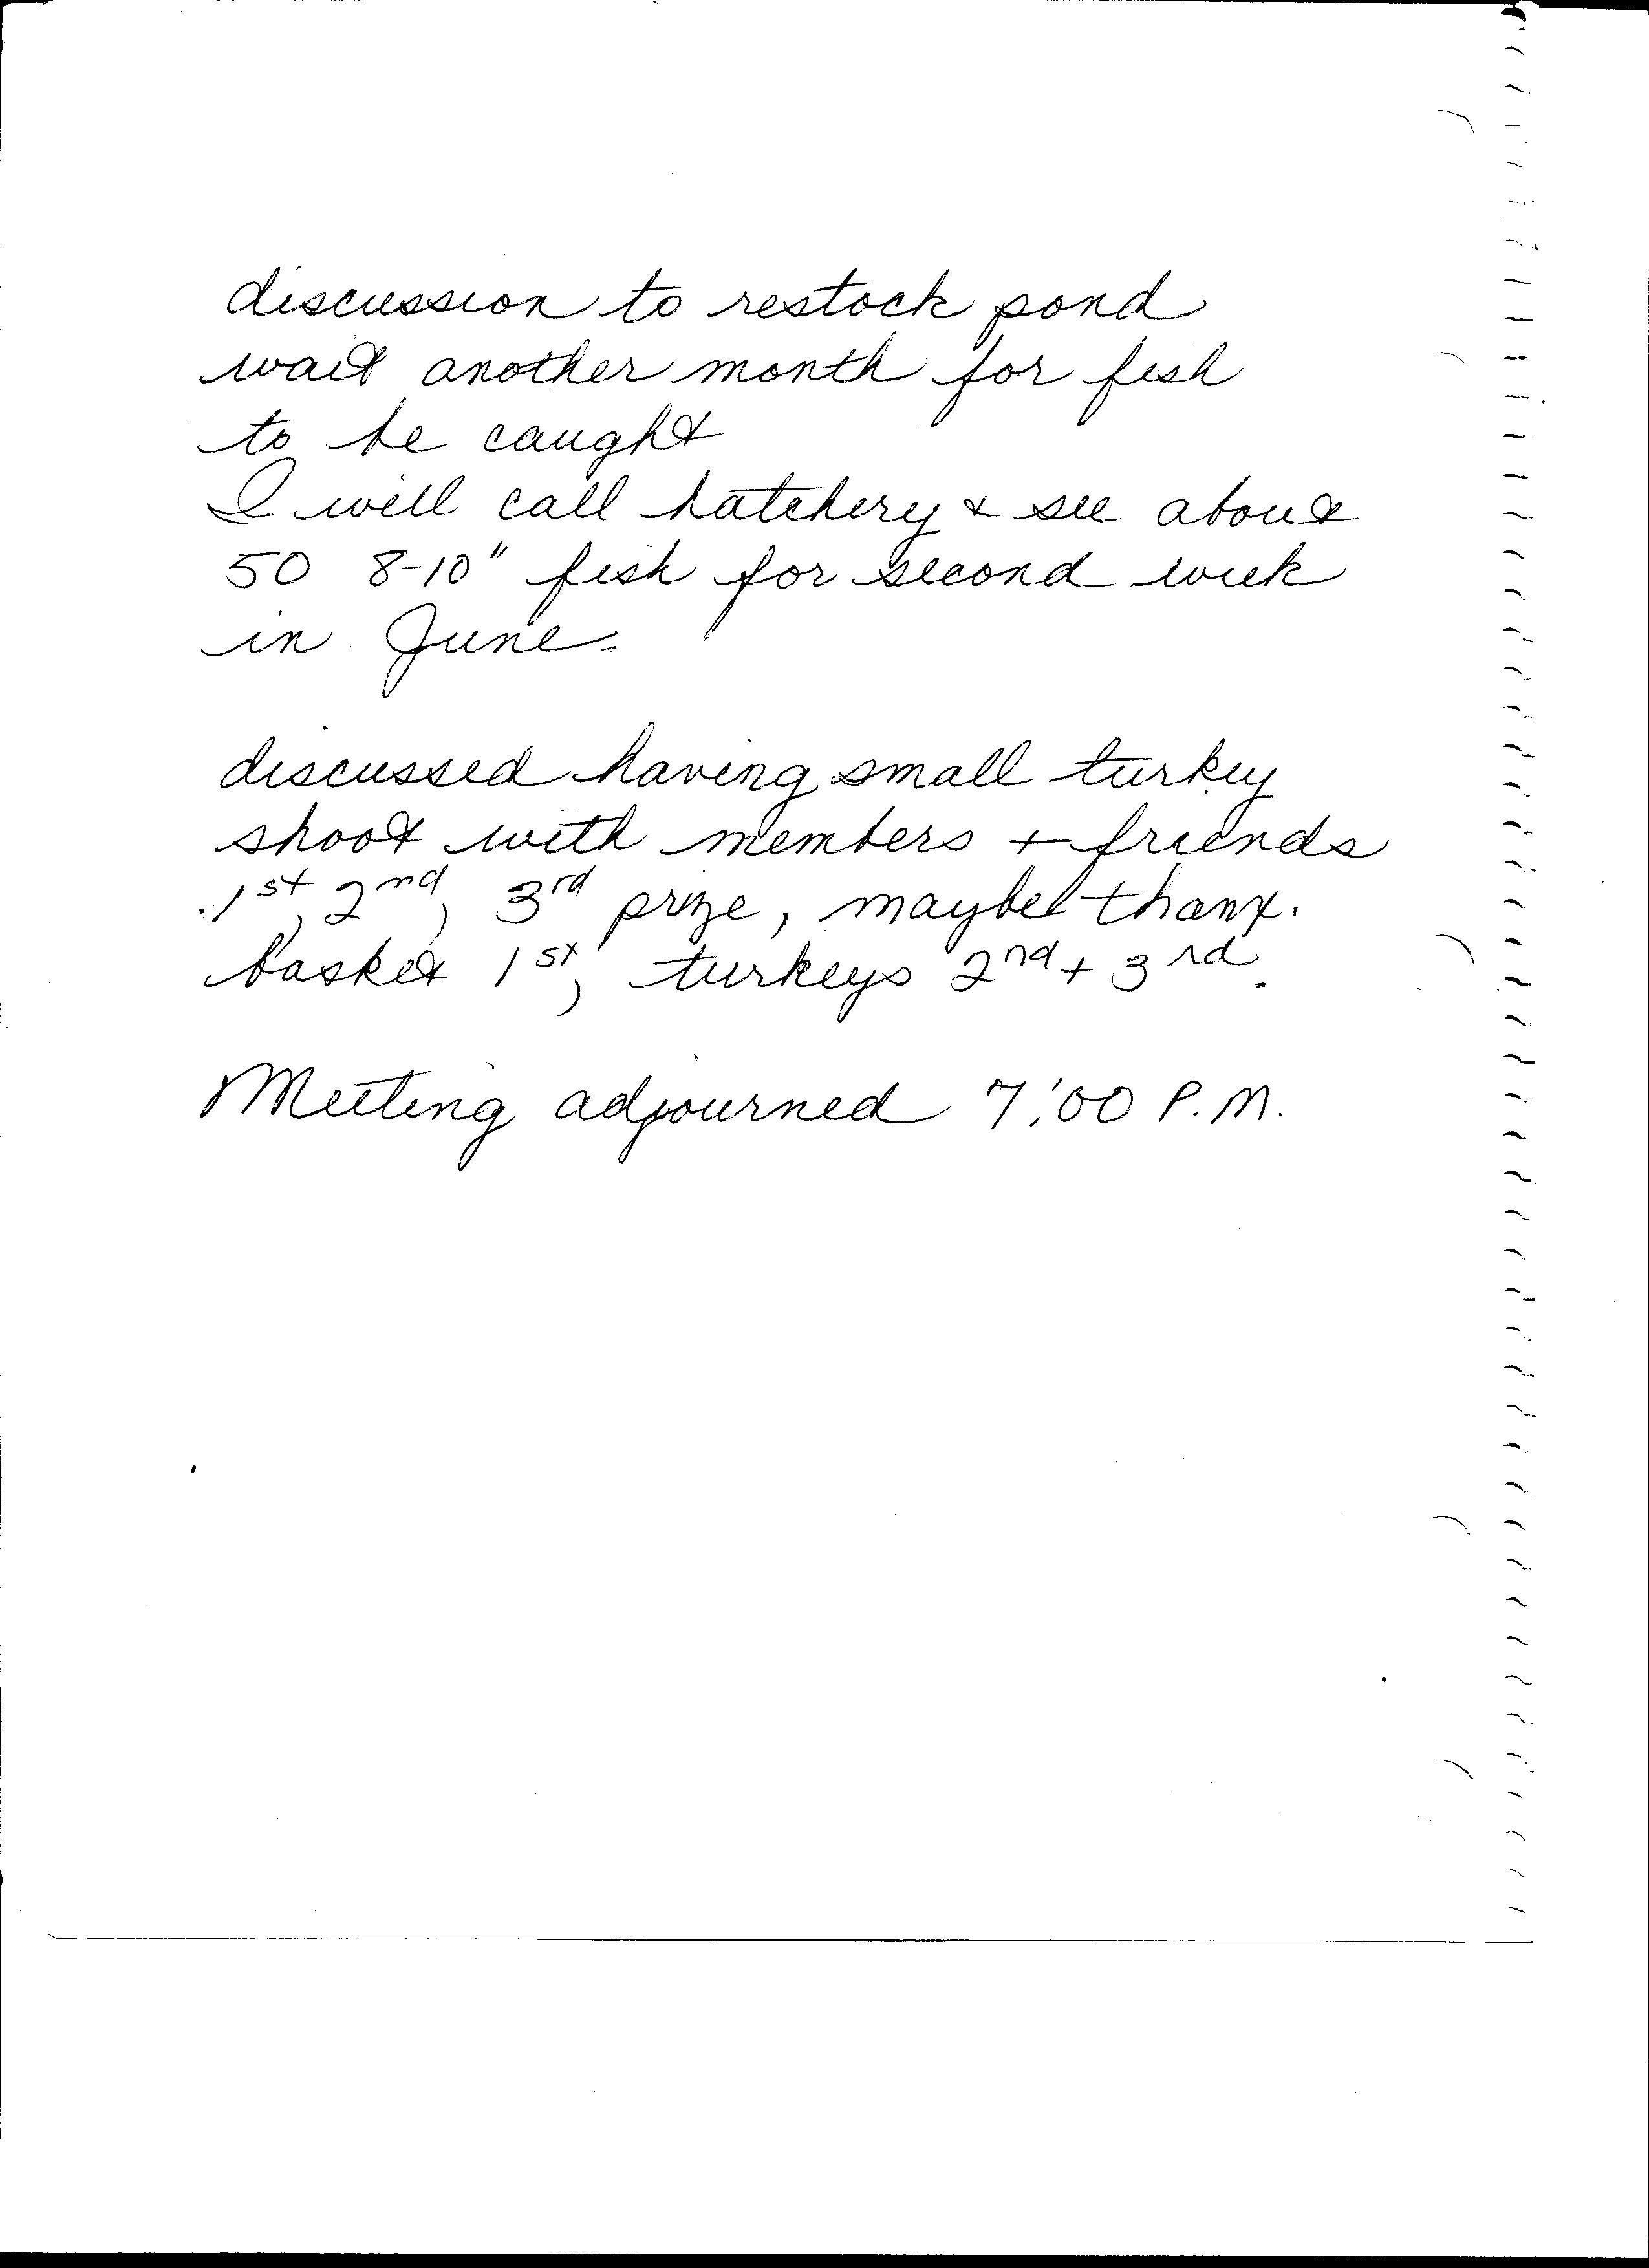 discussion to restock pond
wait another month for fish
to be caught
I will call hatchery & see about
50 8-10" fish for second week
in June.
discussed having small turkey
shoot with members + friends
1st, 2nd, 3rd prize, maybe thanx.
basket 1st, turkeys 2nd + 3rd.
Meeting adjourned 7:00 P.M.